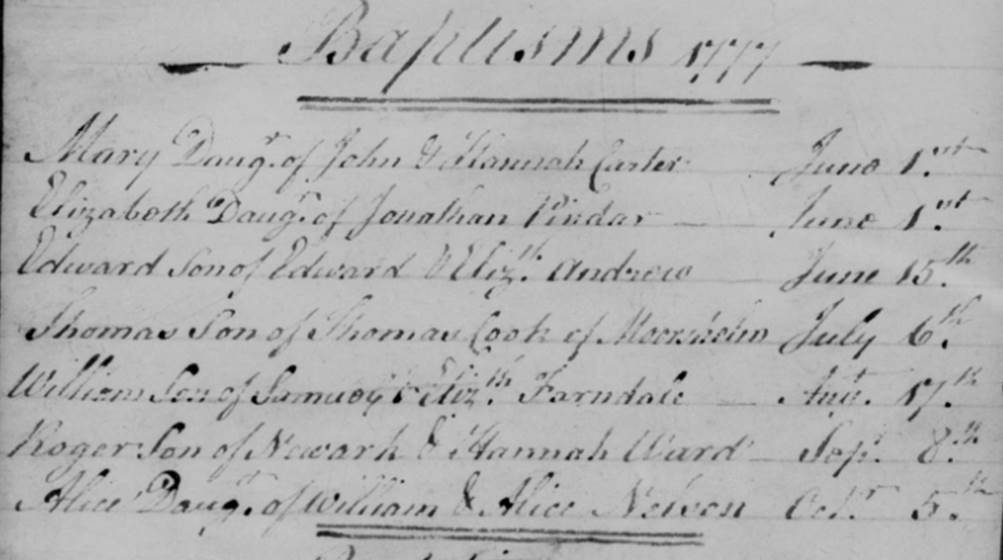 Baptisms 1777
Mary Daugr. of John & Hannah Carter June 1.st
Elizabeth Daugr. of Jonathan Pindar — June 1.st
Edward Son of Edward & Eliz.th Andrew June 15.th
Thomas Son of Thomas Cook of Moorsholm July 6.th
William Son of Samuel & Eliz.th Farndale — Augt. 17.th
Roger Son of Newark & Hannah Ward — Sepr. 8.th
Alice Daugr. of William & Alice Nelson Oct.r 5.th